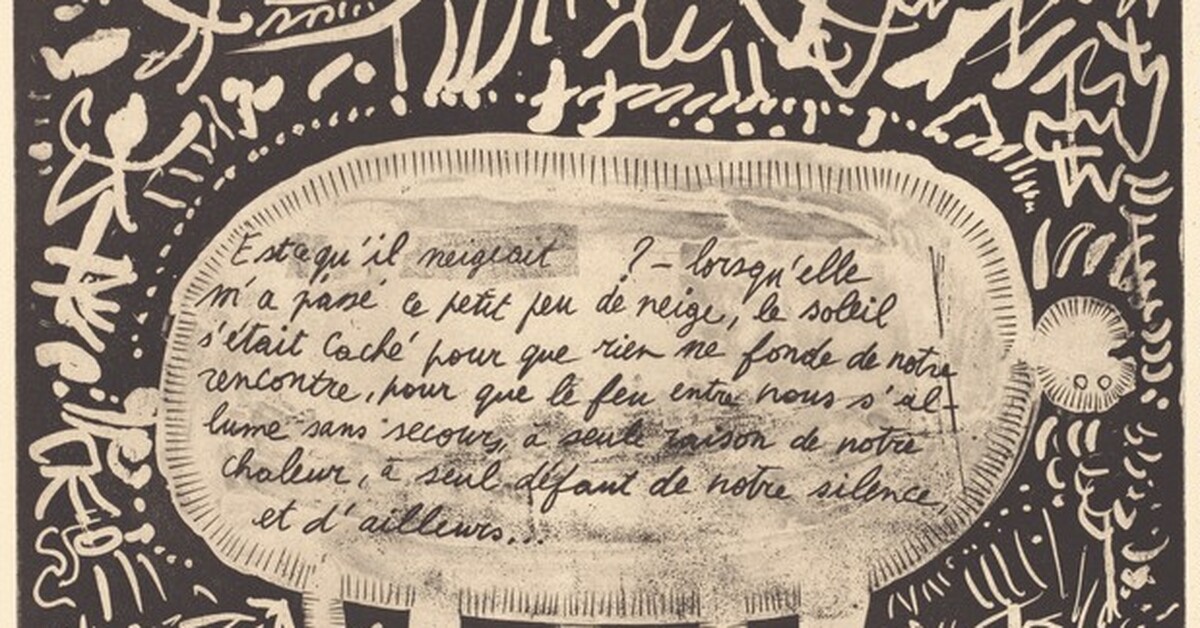 Est ce qu'il neigeait ? – lorsqu'elle
m'a passé ce petit peu de neige, le soleil
s'était caché pour que rien ne fonde de notre
rencontre, pour que le feu entre nous s'al-
lume sans secours, à seule raison de notre
chaleur, à seul défaut de notre silence,
et d'ailleurs...